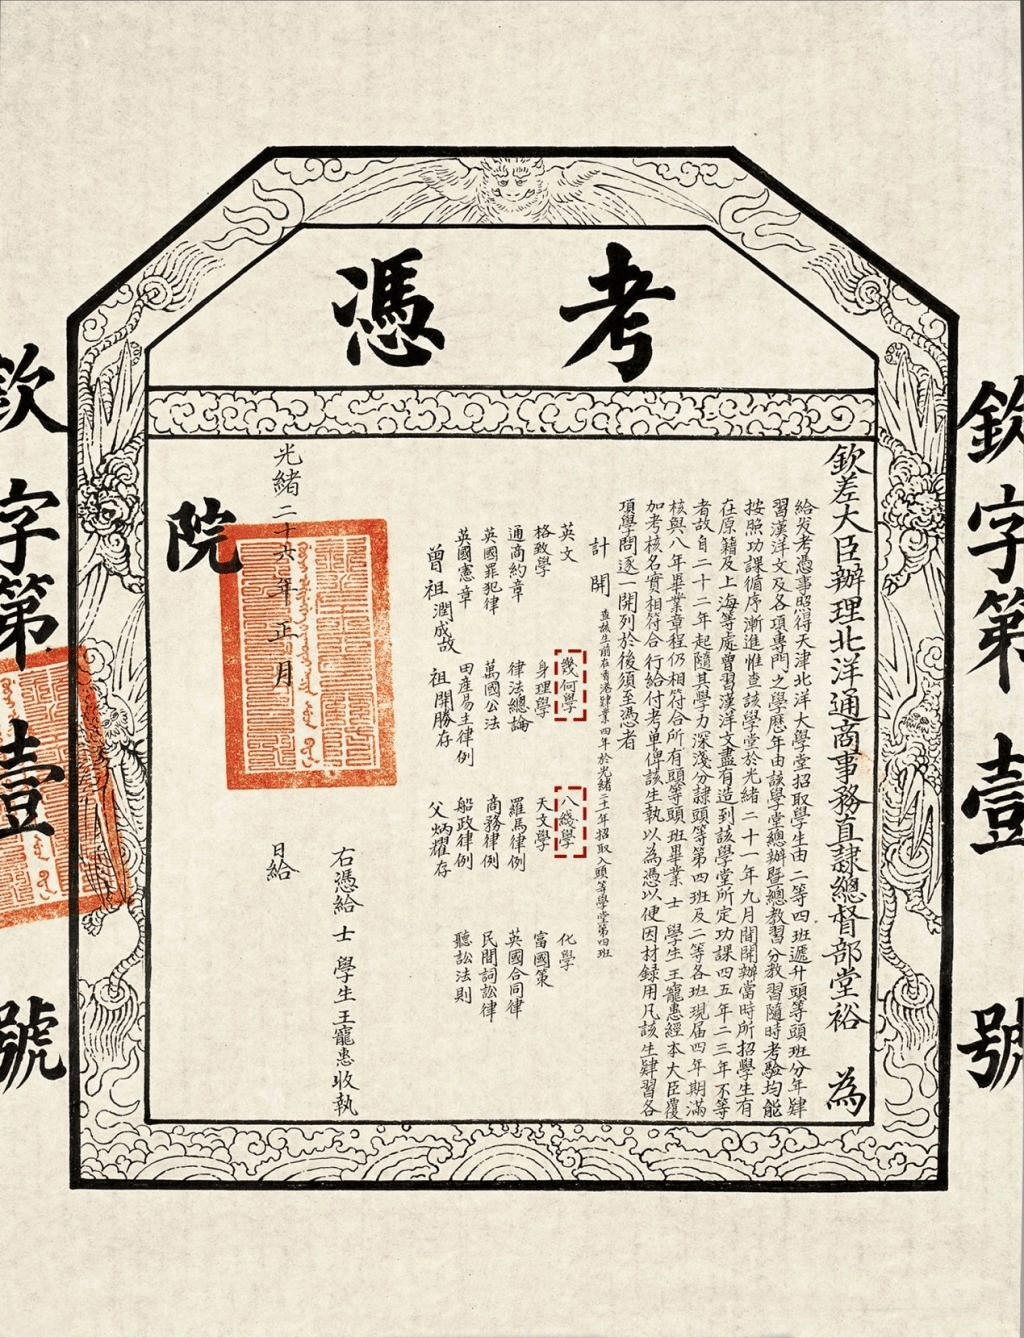 考憑
欽字第壹號
欽差大臣辦理北洋通商事務直隸總督部堂裕 為
給发考憑事照得天津北洋大學堂招取學生由二等四班遞升頭等頭班分年肄
習漢洋文及各項專門之學歷年由該學堂總辦暨總教習分教習隨時考驗均能
按照功課循序漸進惟查該學堂於光緒二十一年九月間開辦當時所招學生有
在原籍及上海等處曾習漢洋文盡有造到該學堂所定功課四五年二三年不等
者故自二十二年起隨其學力深淺分隸頭等第四班及二等各班現届四年期滿
核與八年畢業章程仍相符合所有頭等頭班畢業士 學生王寵惠經本大臣覆
加考核名實相符合行給付考單俾該生執以為憑以便因材録用凡該生肄習各
項學問逐一開列於後須至憑者
計 開 查該生前在香港肄業四年於光緒二十一年招取入頭等學堂第四班
英文 幾何學 八綫學 化學
格致學 身理學 天文學 富國策
通商約章 律法總論 羅馬律例 英國合同律
英國罪犯律 萬國公法 商務律例 民間詞訟律
英國憲章 田產易主律例 船政律例 聽訟法則
曾祖潤成故 祖開勝存 父炳耀存
右憑給士 學生王寵惠收執
光緒二十六年正月 日給
院
欽字第壹號